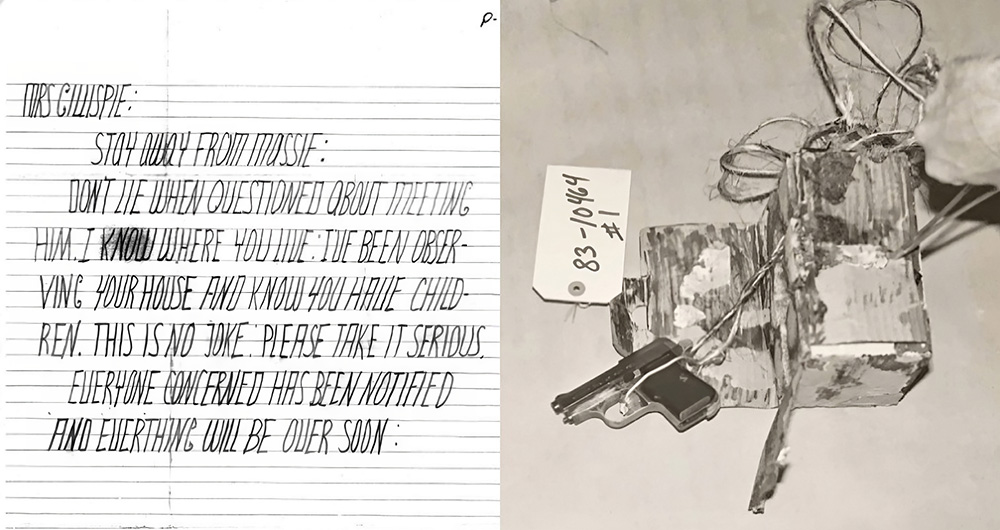 P-
MRS GILLISPIE:
STAY AWAY FROM MASSIE:
DON'T LIE WHEN QUESTIONED ABOUT MEETING
HIM. I KNOW WHERE YOU LIVE: I'VE BEEN OBSER-
VING YOUR HOUSE AND KNOW YOU HAVE CHILD-
REN. THIS IS NO JOKE: PLEASE TAKE IT SERIOUS.
EVERYONE CONCERNED HAS BEEN NOTIFIED
AND EVERTHING WILL BE OVER SOON:
83-10464
#1